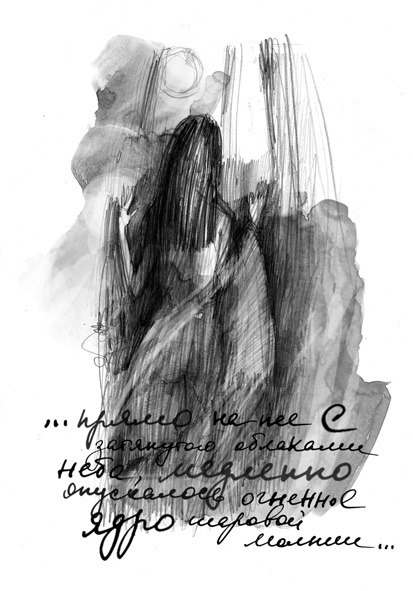 ...прямо на нее с
затянутого облаками
неба, медленно
опускалось огненное
ядро шаровой
молнии...